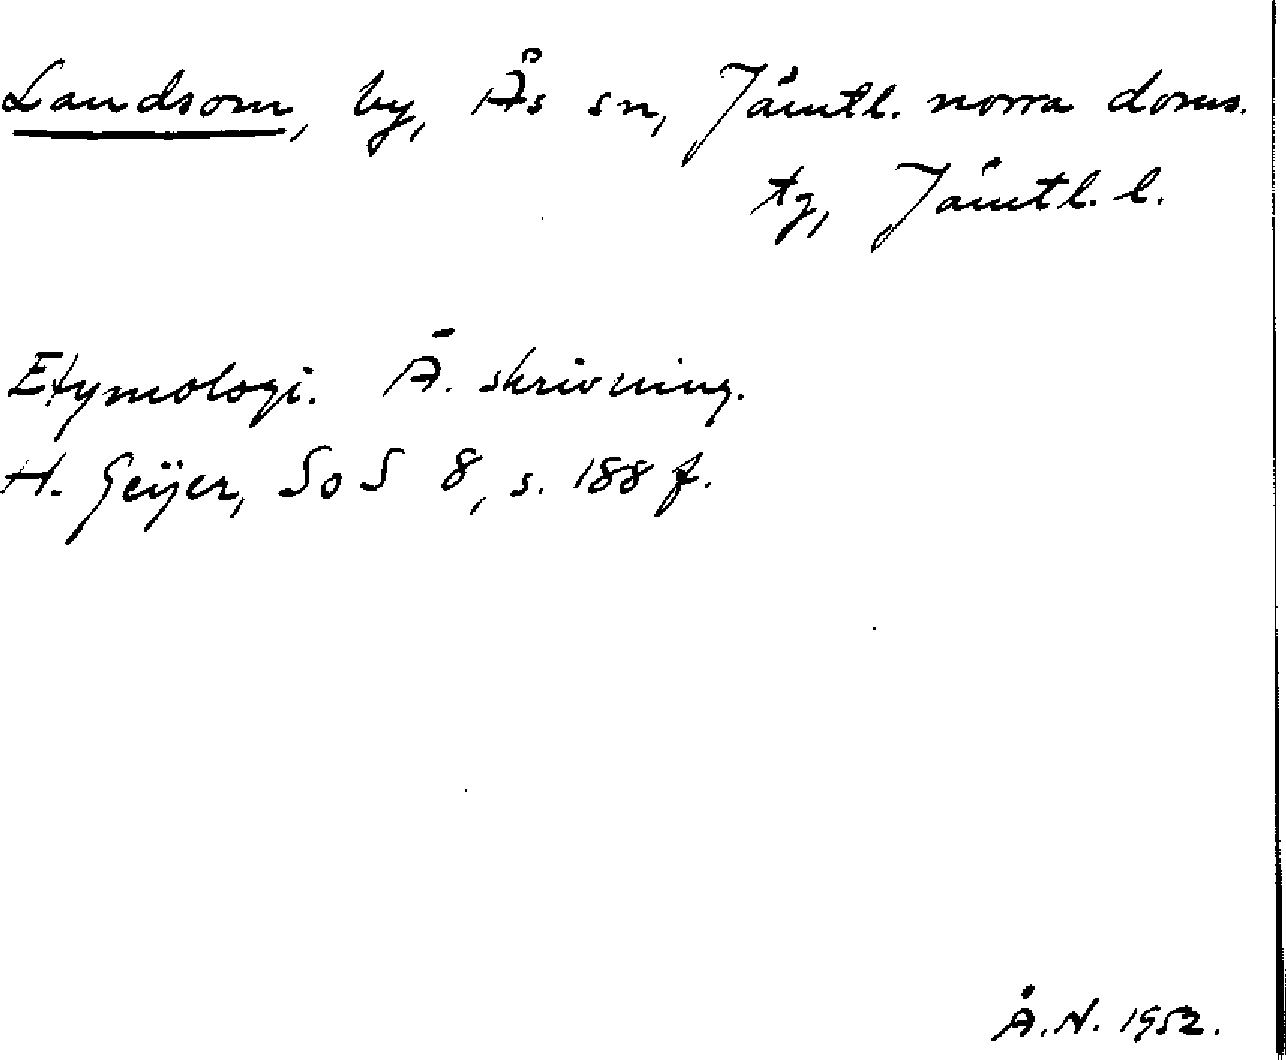 Landsom, by, Ås sn, Jämtl. norra doms.
tg, Jämtl. l.
Etymologi. Ä. skrivning.
H. Geijer, SoS 8, s. 188 f.
Å.N. 1952.